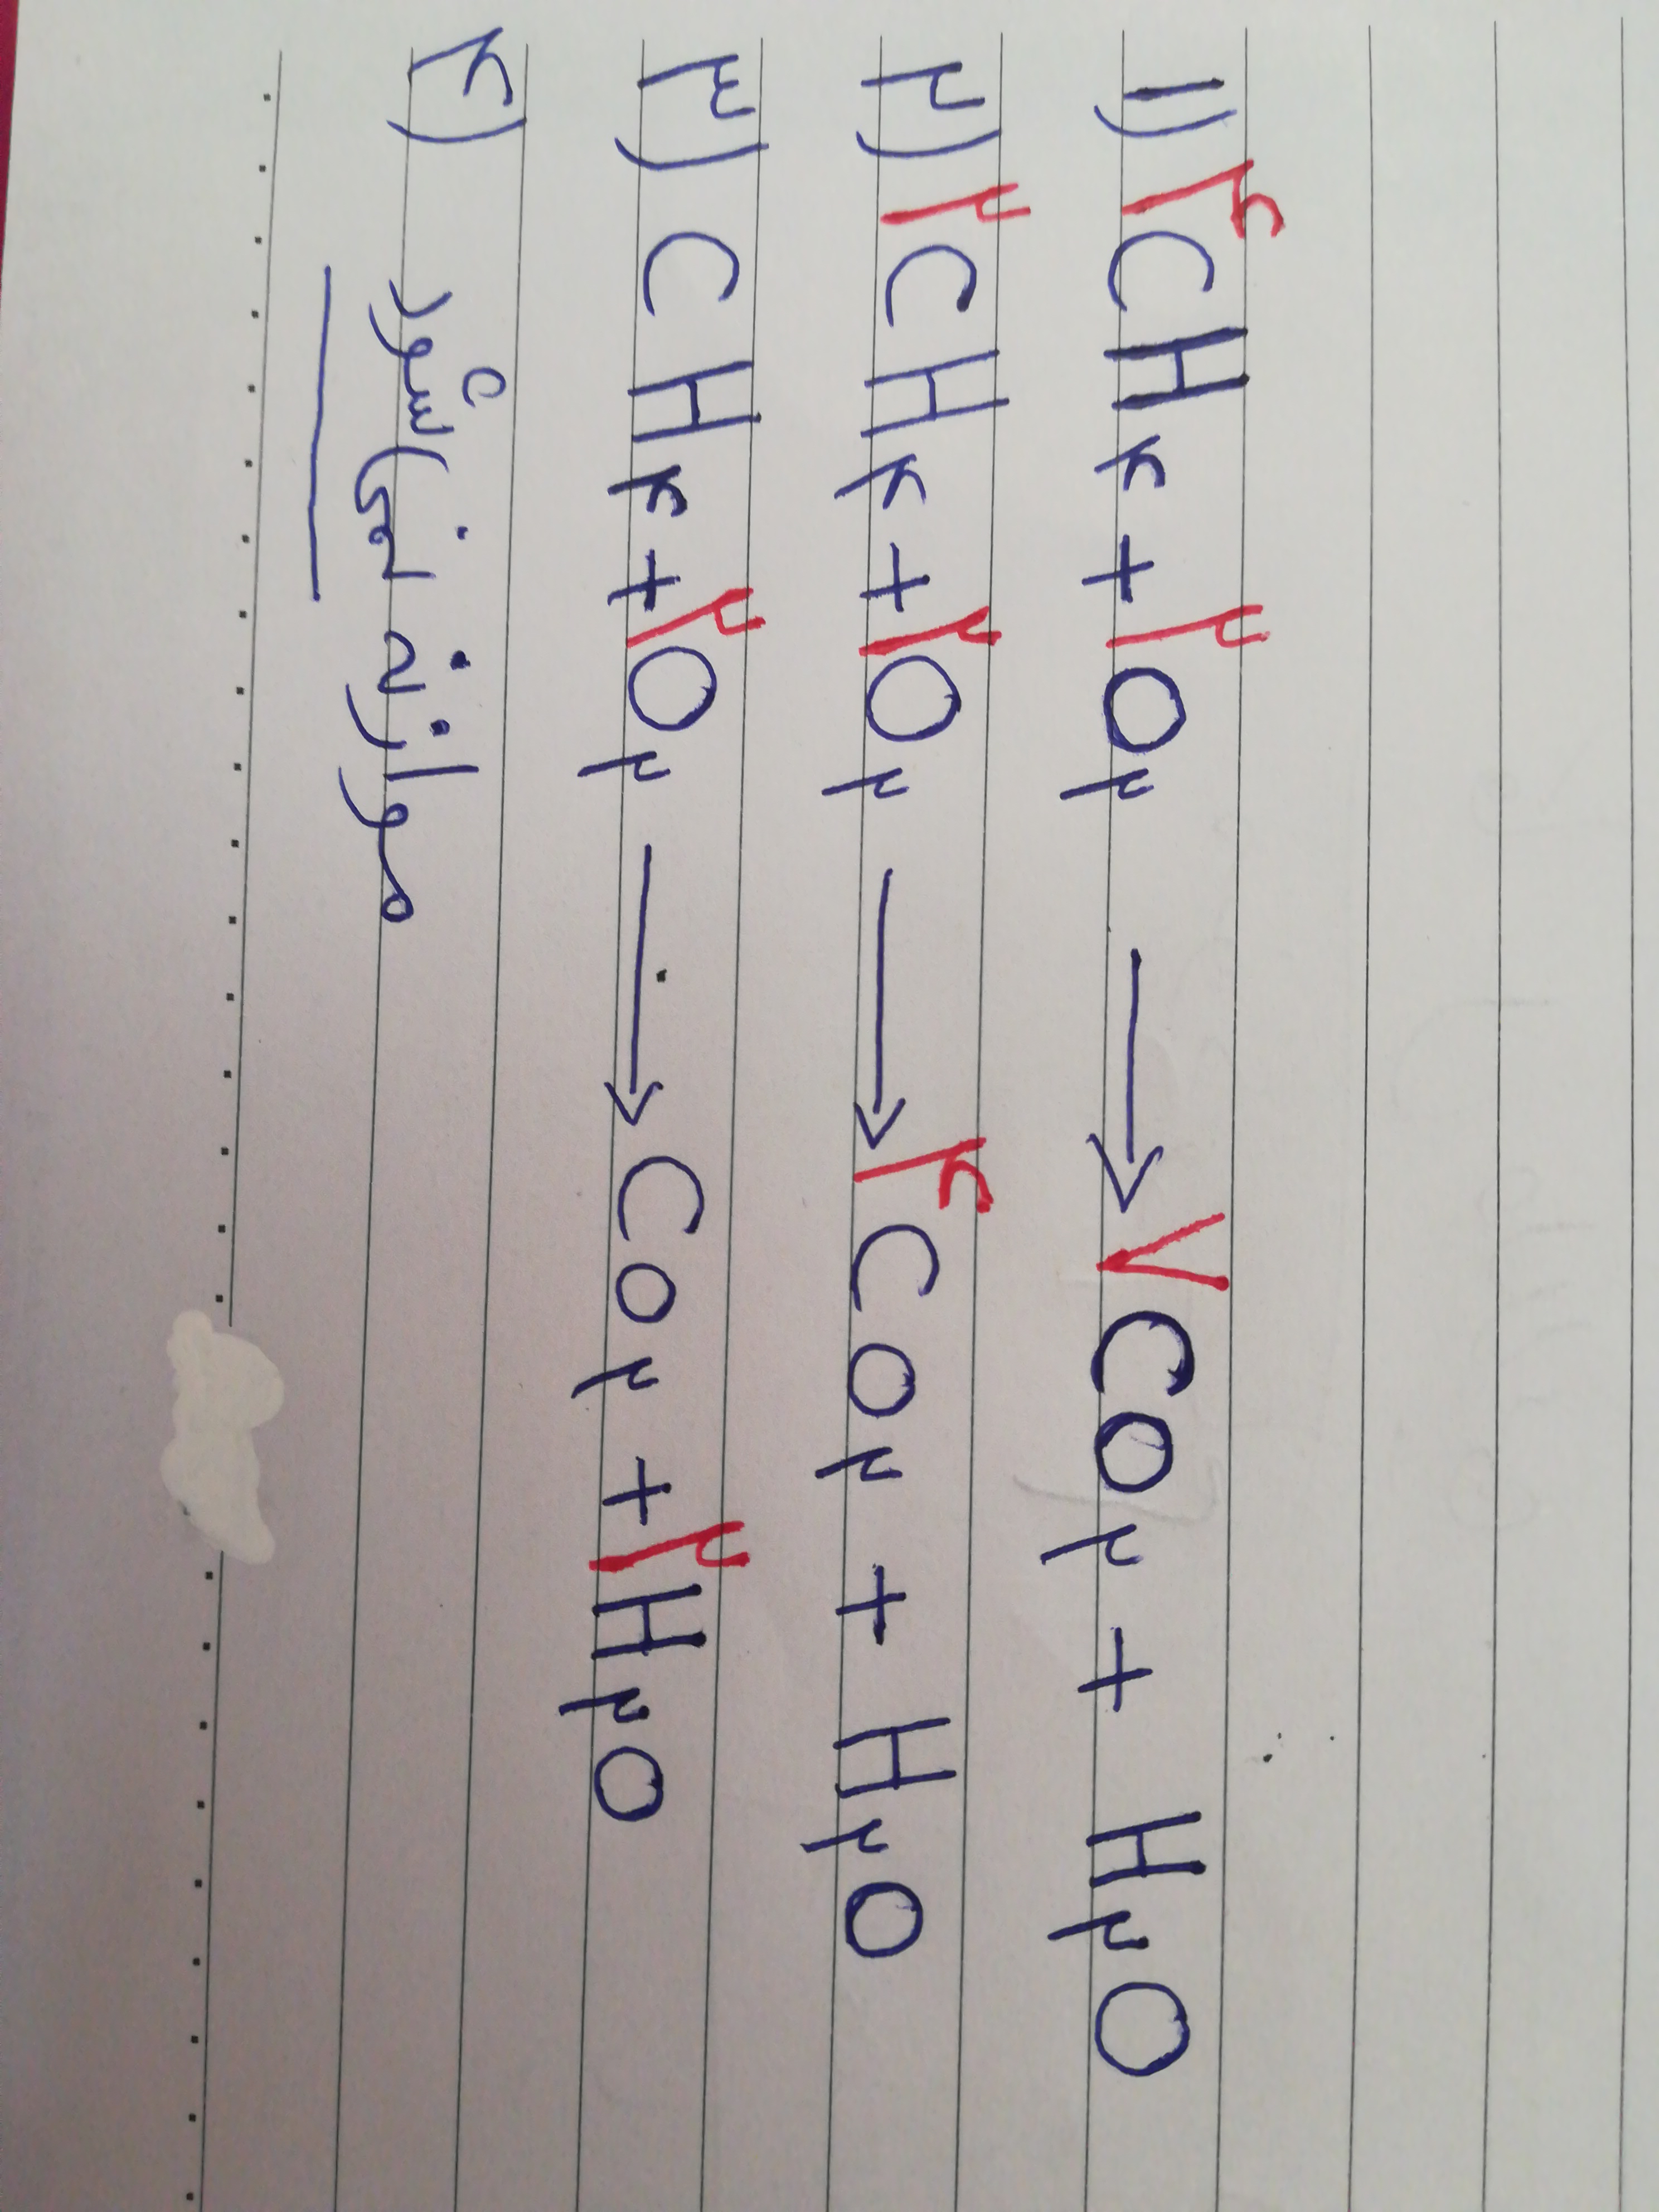 ۱) ۴CH۴ + ۲O۲ → ۷CO۲ + H۲O
۲) ۲CH۴ + ۲O۲ → ۴CO۲ + H۲O
۳) CH۴ + ۲O۲ → CO۲ + ۲H۲O
۴) موازنه نمی شود